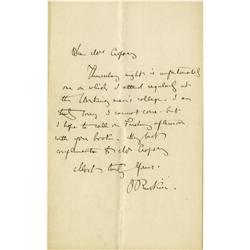 Dear Mrs Cropsey
Thursday night is unfortunately
one on which I attend regularly
at the Working men's college. I am
truly sorry I cannot come - but
I hope to call on Tuesday afternoon
with your book. My best
compliments to Mr Cropsey
Most truly Yours.
J Ruskin.